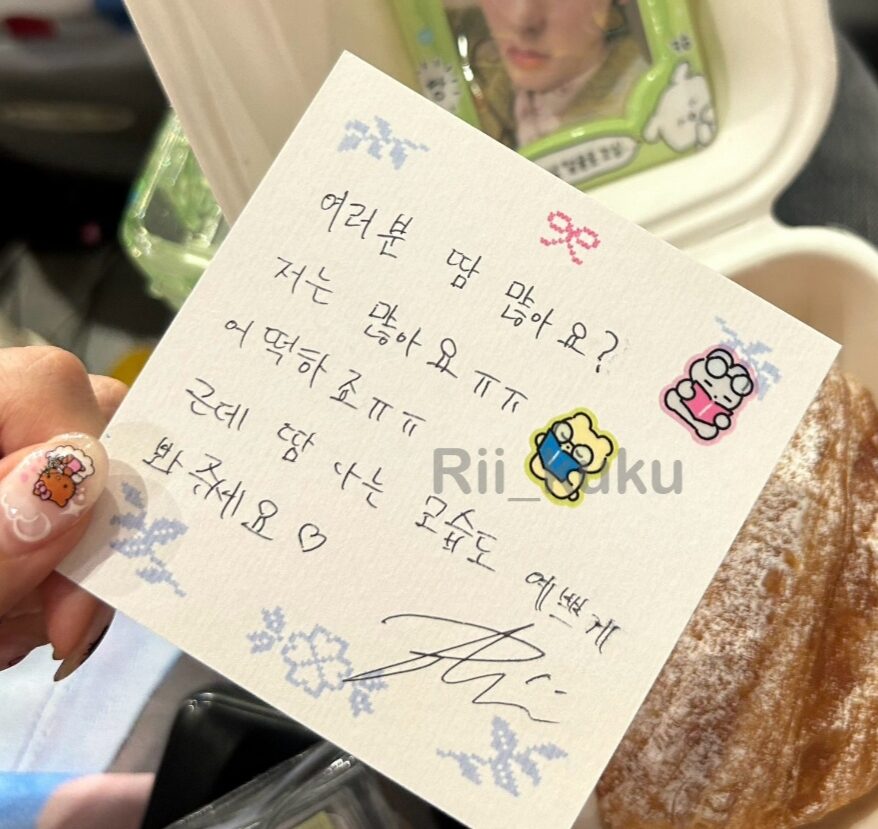 여러분 땀 많아요?
저는 많아요ㅠㅠ
어떡하죠ㅠㅠ
근데 땀 나는 모습도 예쁘게
봐 주세요♡